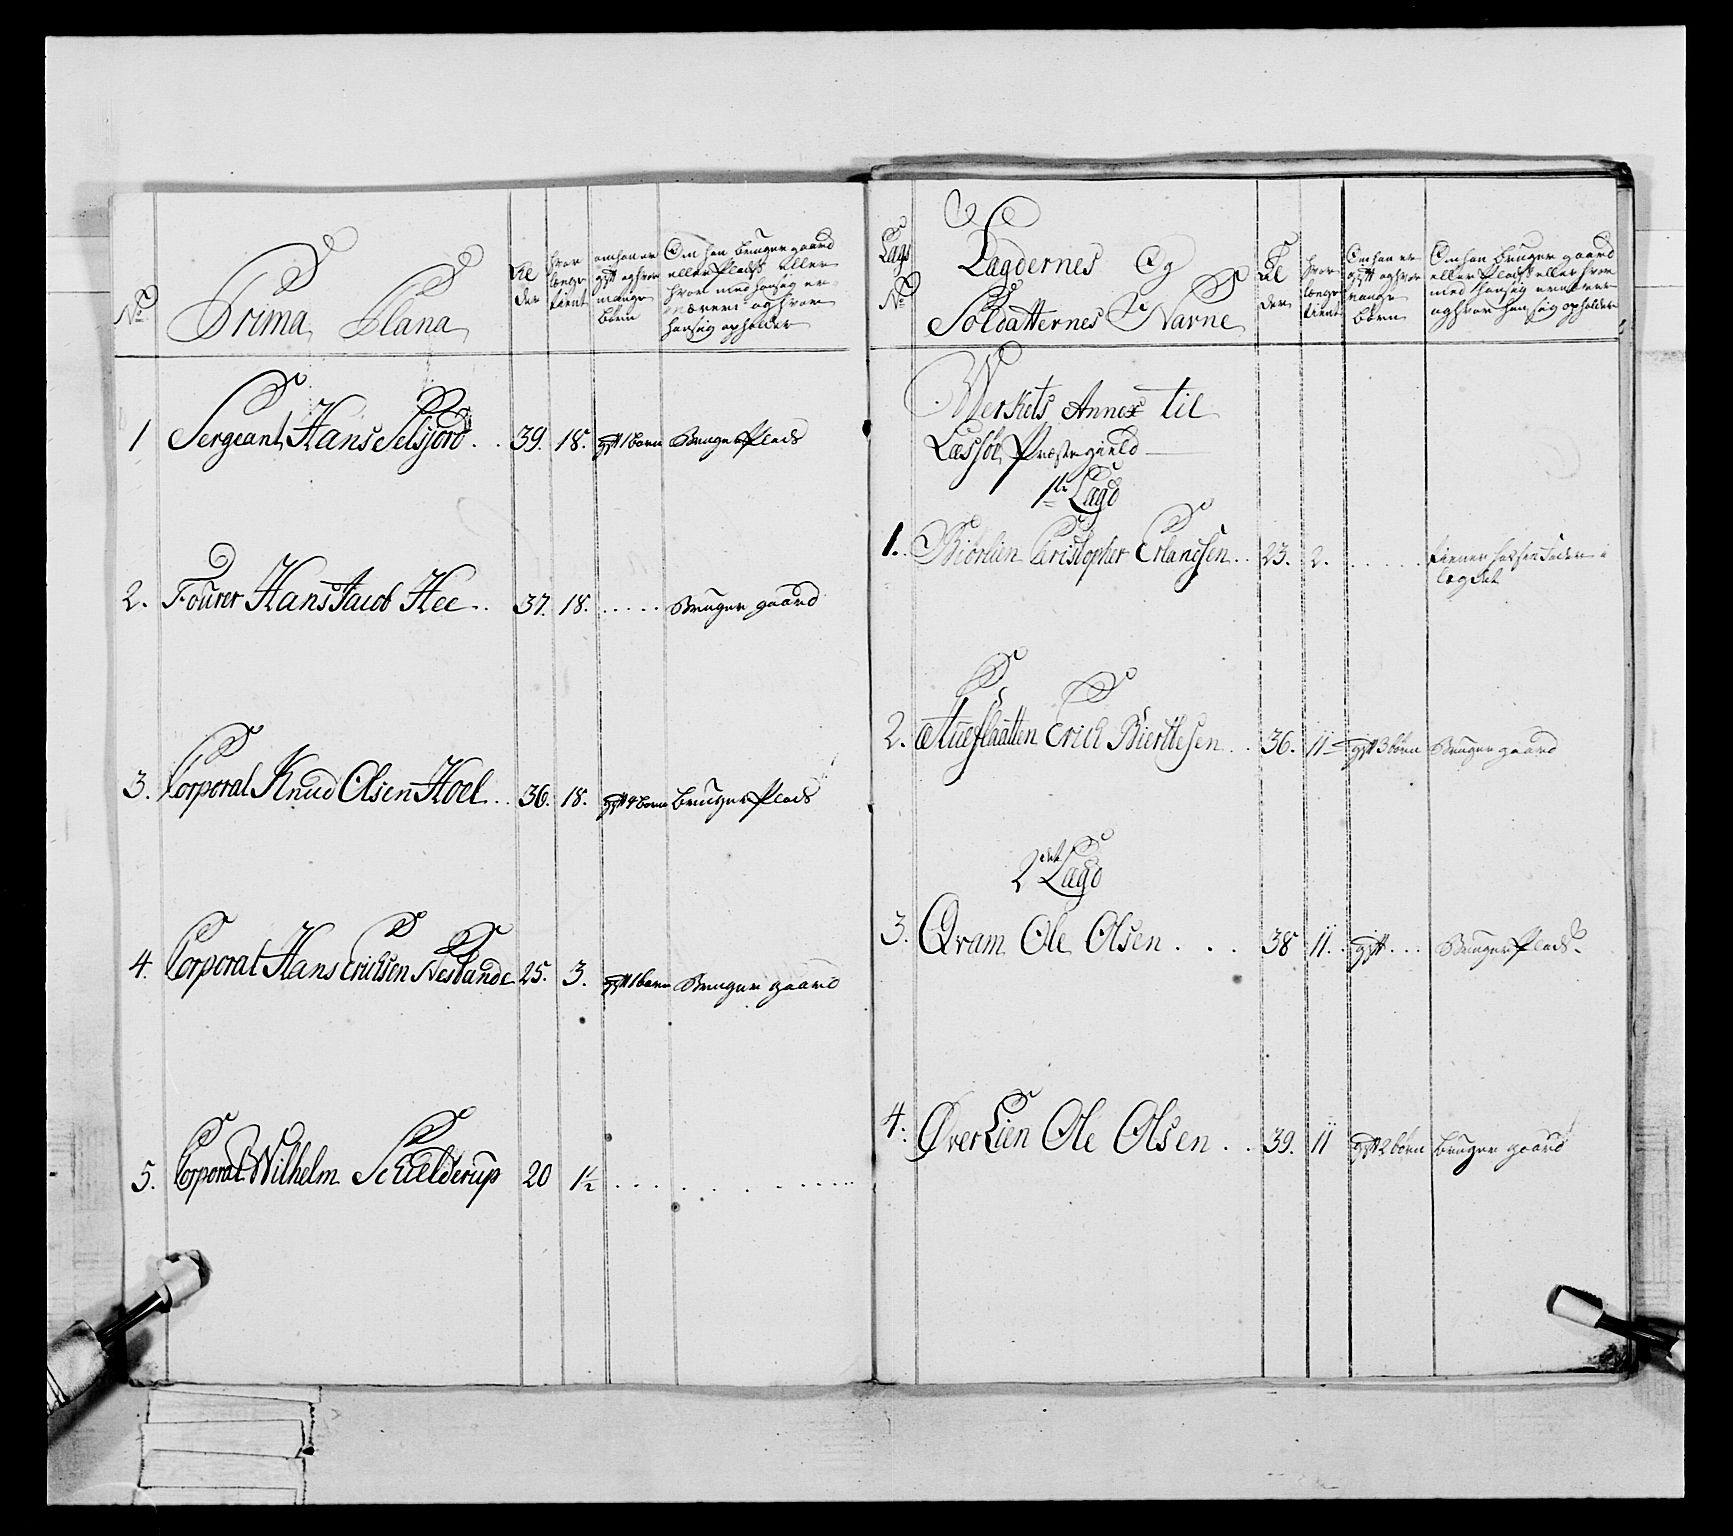 No
Prima Plana
Al
der
hvor
længe
tient
om han er
gift og hvor
mange
børn
Om han bruger gaard
eller Plads eller
hvor med han sig er-
nærer og hvor
han sig opholder
1 Sergeant Hans Selsjord . . 39. 18. gift 1 børn Bruger Plads
2. Fourer Hans Jacob Hee . . 37. 18. . . . . . Bruger gaard
3. Corporal Knud Olsen Hoel . . 36. 18. gift 4 børn bruger Plads
4. Corporal Hans Erichsen Nesbande 25. 3. gift 1 børn Bruger gaard
5. Corporal Wilhelm Schielderup 20 1½ . . . . . . . . . .
Lags
No
Lagdernes Og
Soldatternes Navne
Al
der
hvor
længe
tient
Om han er
gift og hvor
mange
børn
Om han bruger gaard
eller Plads eller hvor
med han sig ernærer
og hvor han sig opholder
Werkets Annex til
Læssøe Præstegield
1te Lagd
1. Biørlien Christopher Erlandsen . . 23. 2. . . . . . tiener hos sin Fader i
Legdet
2. Erich Bierthesen . . 36. 11 gift 3 børn Bruger gaard
2det Lagd
3. Qvam Ole Olsen . . . 38 11. gift . . . Bruger Plads
4. Øver Lien Ole Olsen . . 39. 11 gift 2 børn bruger gaard